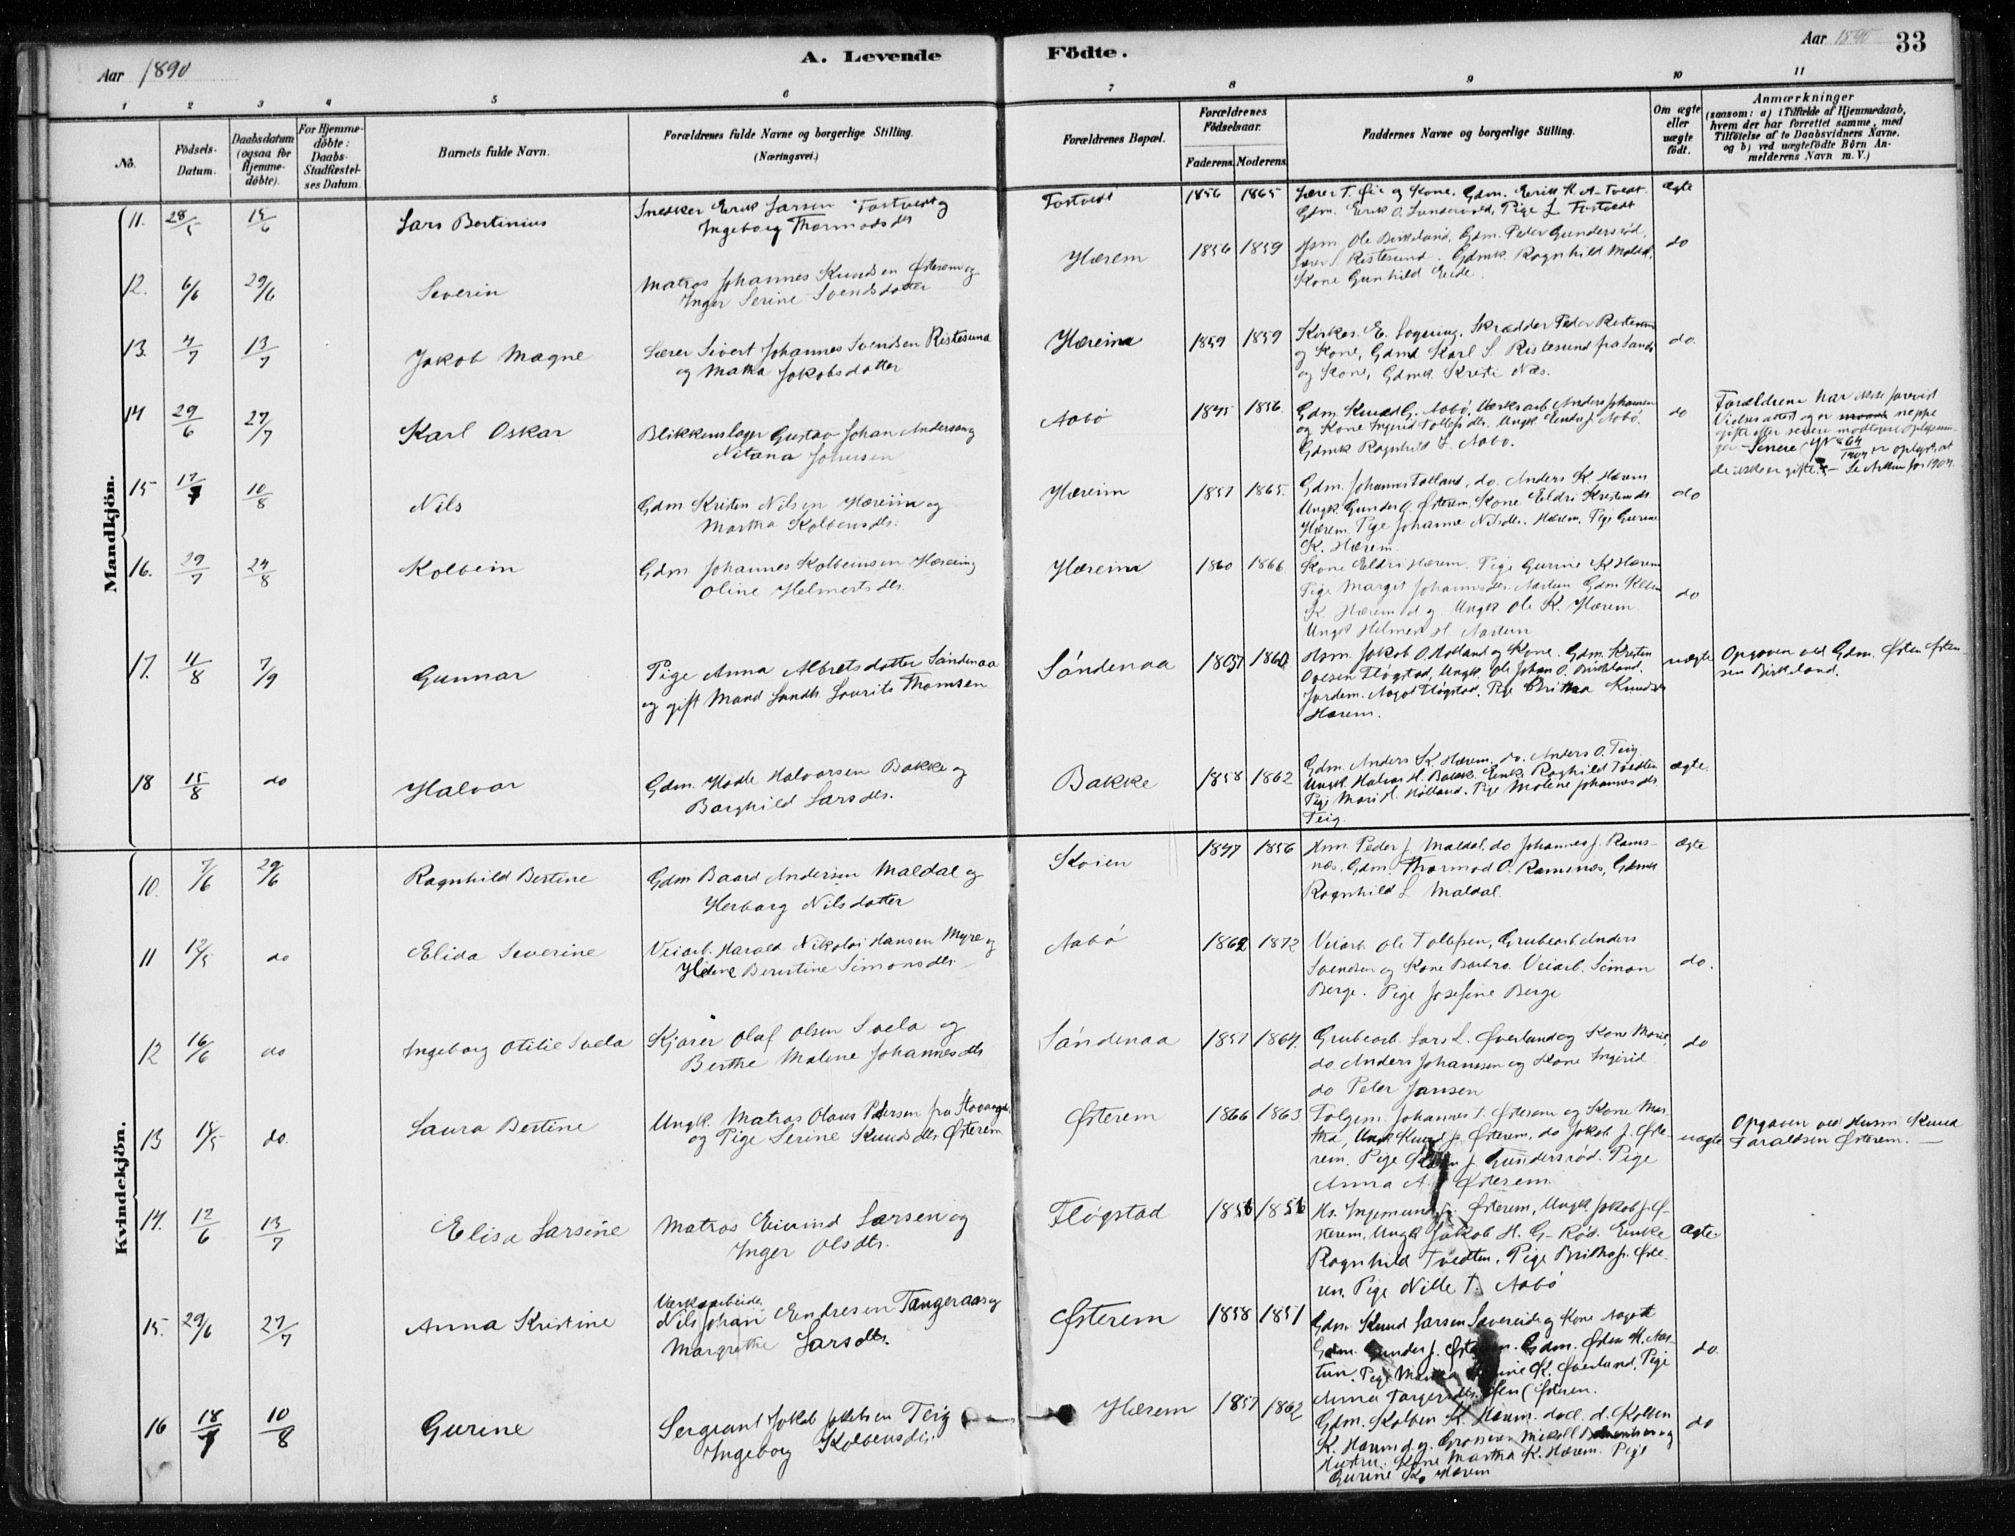 Aar 1890
A. Levende Födte.
Aar 1890
33
1 2 3 4 5 6 7 8 9 10 11
No.
Födsels-
Datum.
Daabsdatum
(ogsaa for
Hjemme-
döbte).
For Hjemme-
döbte:
Daabs-
Stadfæstel-
ses Datum.
Barnets fulde Navn.
Forældrenes fulde Navne og borgerlige Stilling.
(Næringsvei.)
Forældrenes Bopæl.
Forældrenes
Födselsaar.
Faderens. Moderens.
Faddernes Navne og borgerlige Stilling.
Om ægte
eller
uægte
födt.
Anmærkninger
(saasom: a) i Tilfælde af Hjemmedaab,
hvem der har forrettet samme, med
Tilföielse af to Daabsvidners Navne.
og b) ved uægtefödte Börn An-
melderens Navn m. V.)
Mandkjön.
11. 28/5 15/6 Lars Bertinius
Snedker Erik Larsen Tostvedt og
Ingeborg Thormodsdtr
Tostvedt 1856 1865
Lærer T. Øie og Kone. Gdm. Erik K. A-Tvedt
Gdm. Erik O. Sunderoed, Pige J. Tostvedt
ægte
12. 6/6 29/6 Severin
Matros Johannes Knudsen Østerem og
Inger Serine Svendsdatter
Hærem 1856 1859
Hsm. Ole Birkeland, Gdm. Peder Gundersröd,
Lærer S. Ristesund. Gdmk. Ragnhild Maldal,
Kone Gunhild Eide.
do
13. 4/7 13/7 Jakob Magne
Lærer Sivert Johannes Svendsen Ristesund
og Marta Jakobsdatter
Hæreim 1859 1859
Kirkes. E. Sogering. Skrædder Peder Ristesund
og Kone, Gdmd Karl S. Ristesund fra Sande
og Kone, Gdmk. Kristi Næs.
do.
14 29/6 27/7 Karl Oskar
Blikkenslager Gustav Johan Anderson og
Nitana Johnsen
Aabö 1845 1856.
Gdm. Knud G. Aabö, Værksarb. Anders Johannesen
og Kone Ingerid Tollefsdtr. Ungk. Endre J. Aabö.
Gdmk Ragnhild T. Aabö.
do
Forældrene har ikke forevist
Vielsesattest og er neppe
gifte efter senere modtagne Oplysnin-
ger. Senere (JN 64/1904) er oplyst, at
de ikke er gifte. Se Akten for 1904.
15 17/7 10/8 Nils
Gdm Kristen Nilsen Hæreim og
Martha Kolbensdtr.
Hæreim 1857 1865.
Gdm. Johannes Tolland, do. Anders K. Hærem
Ungk. Gunder O. Østerem, Kone Eldri Kristensdtr
Hærem. Pige Johanne Nilsdtr. Hærem. Pige Gurine
K. Hærem.
do
16. 29/7 24/8 Kolbein
Gdm Johannes Kolbeinsen Hæreim og
Oline Helmertsdtr.
Hæreim 1860 1866
Kone Eldri Hærem. Pige Gurine K Hærem
Pige Margit Johannesdtr. Aartun Gdm Kolben
K. Hærem d. y. Ungk Ole K. Hærem
Ungk Helmert H. Aartun
do
17. 11/8 7/9 Gunnar
Pige Anna Albretsdatter Söndenaa
og gift Mand Landh. Lourits Thomsen
Söndenaa 1857 1860.
Hsm. Jakob O. Holland og Kone. Gdm. Kristen
Ovesen Flögstad, Ungk. Ole Johan O. Birkland.
Jordem. Aagot Flögstad. Pige Britha Knudsdtr
Hærem.
uægte
Opgaven ved Gdm. Østen Østen-
sen Birkeland.
18 15/8 do Halvor
Gdm. Hadle Halvorsen Bakke og
Borghild Larsdtr.
Bakke 1858 1862
Gdm. Anders K. Hærem. do. Anders O. Teig
Ungk. Halvor H. Bakk. Enk. Ragnhild Tvedten
Pige Mari H. Holland. Pige Malene Johannesdtr.
Teig.
ægte.
Kvindekjön.
10. 7/6 29/6 Ragnhild Bertine
Gdm Baard Andersen Maldal og
Herborg Nilsdatter
Skoien 1847 1856
Hsm. Peder J. Maldal, do Johannes J. Rams-
næs. Gdm. Thormod O. Ramsnæs, Gdmk
Ragnhild L. Maldal.
ægte
11 12/5 do Elida Severine
Veiarb. Harald Nikolai Hansen Myre og
Helene Berntine Simonsdtr.
Aabö 1862 1872
Veiarb. Ole Tollefsen, Grubearb Anders
Svendsen og Kone Barbro. Veiarb. Simon
Berge. Pige Josefine Berge
do.
12 16/6 do Ingeborg Otilie Svela
Kjører Olaf Olsen Svela og
Berthe Malene Johannesdtr
Söndenaa 1857 1864.
Grubearb. Lars L. Øverland og Kone Marie,
do. Anders Johannesen og Kone Ingerid
do Peter Jansen
do
13 18/5 do. Laura Bertine
Ungk. Matros Olaus Petersen fra Stavanger
og Pige Serine Knudsdtr Østerem
Østerem 1866 1863
Folgem. Johannes T. Østerem og Kone Mar-
tha, Ungk Knud J. Østerem, do Jakob J. Øste-
rem. Pige Karen J. Gundersröd. Pige
Anna A. Østerem.
uægte
Opgaven ved Husm. Knud
Taraldsen Østerem.
14. 12/6 13/7 Elisa Larsine
Matros Eivind Larsen og
Inger Olsdtr.
Flögstad 1856 1856
Ks. Ingemund Østerem, Ungk Jakob J. Ø-
sterem, Ungk Jakob H. G-Röd. Enke
Ragnhild Tvedten, Pige Britha J. Øste-
rem, Pige Nille T. Aabö
ægte
15. 29/6 27/7 Anna Kristine
Værksarbeider
Nils Johan Endresen Tangeraas og
Margrethe Larsdtr.
Østerem 1858 1857
Gdm. Knud Larsen Sævereide og Kone Aagot
Gdm. Gunder J. Østerem. Gdm. Østen H. Aar-
tun. Pige Martha Serine K. Øverland, Pige
Anna Torgersdtr. Østerem.
do.
16 18/7 10/8 Gurine
Sergeant Jakob Jakobsen Teig
Ingeborg Kolbensdtr.
Hærem 1857 1862
Gdm. Kolben K. Hærem. d. æ. d. Kolben
K. Hærem d. y. Grosserer Mikkell og
Hustru. Kone Martha K. Hærem. Pige
Gurine K. Hærem
do